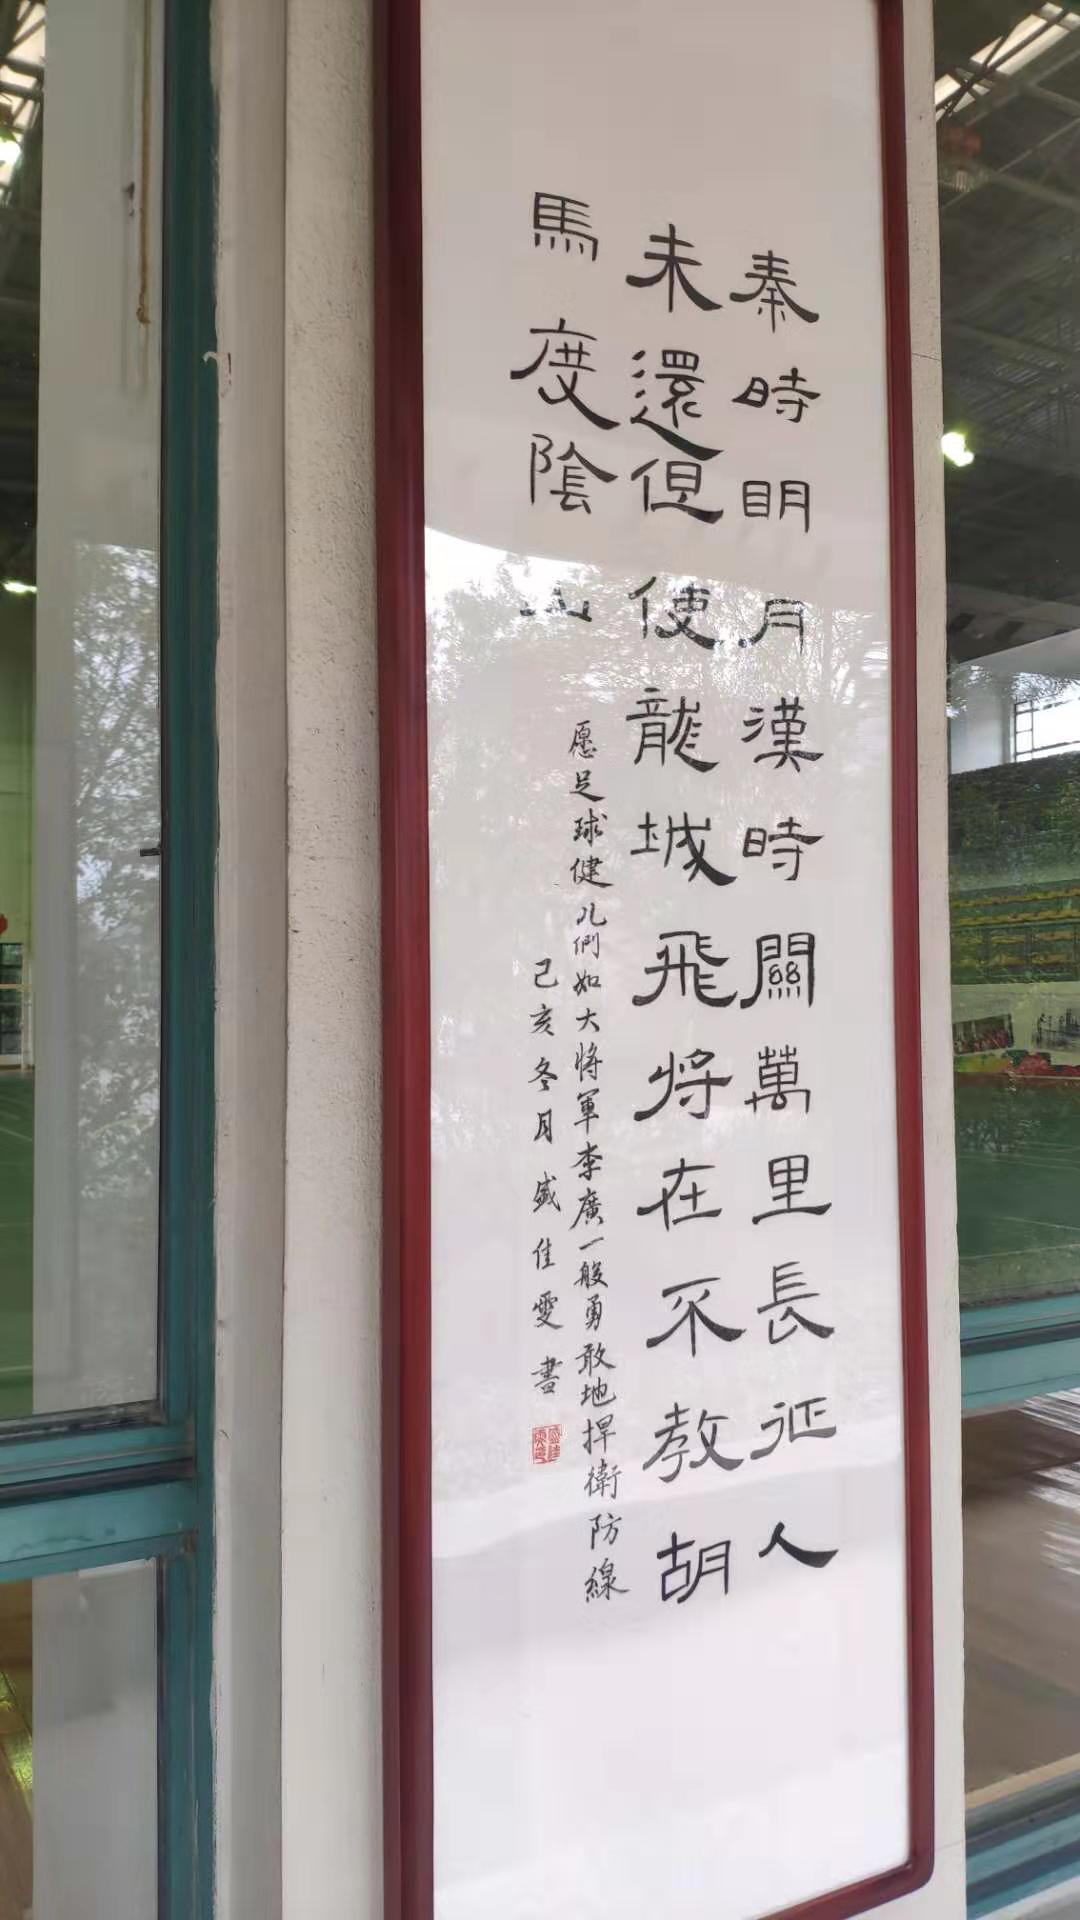 秦時明月漢時關萬里長征人
未還但使龍城飛将在不教胡
馬度陰山
愿足球健儿們如大将軍李廣一般勇敢地捍衛防線
己亥冬月盛佳雯書